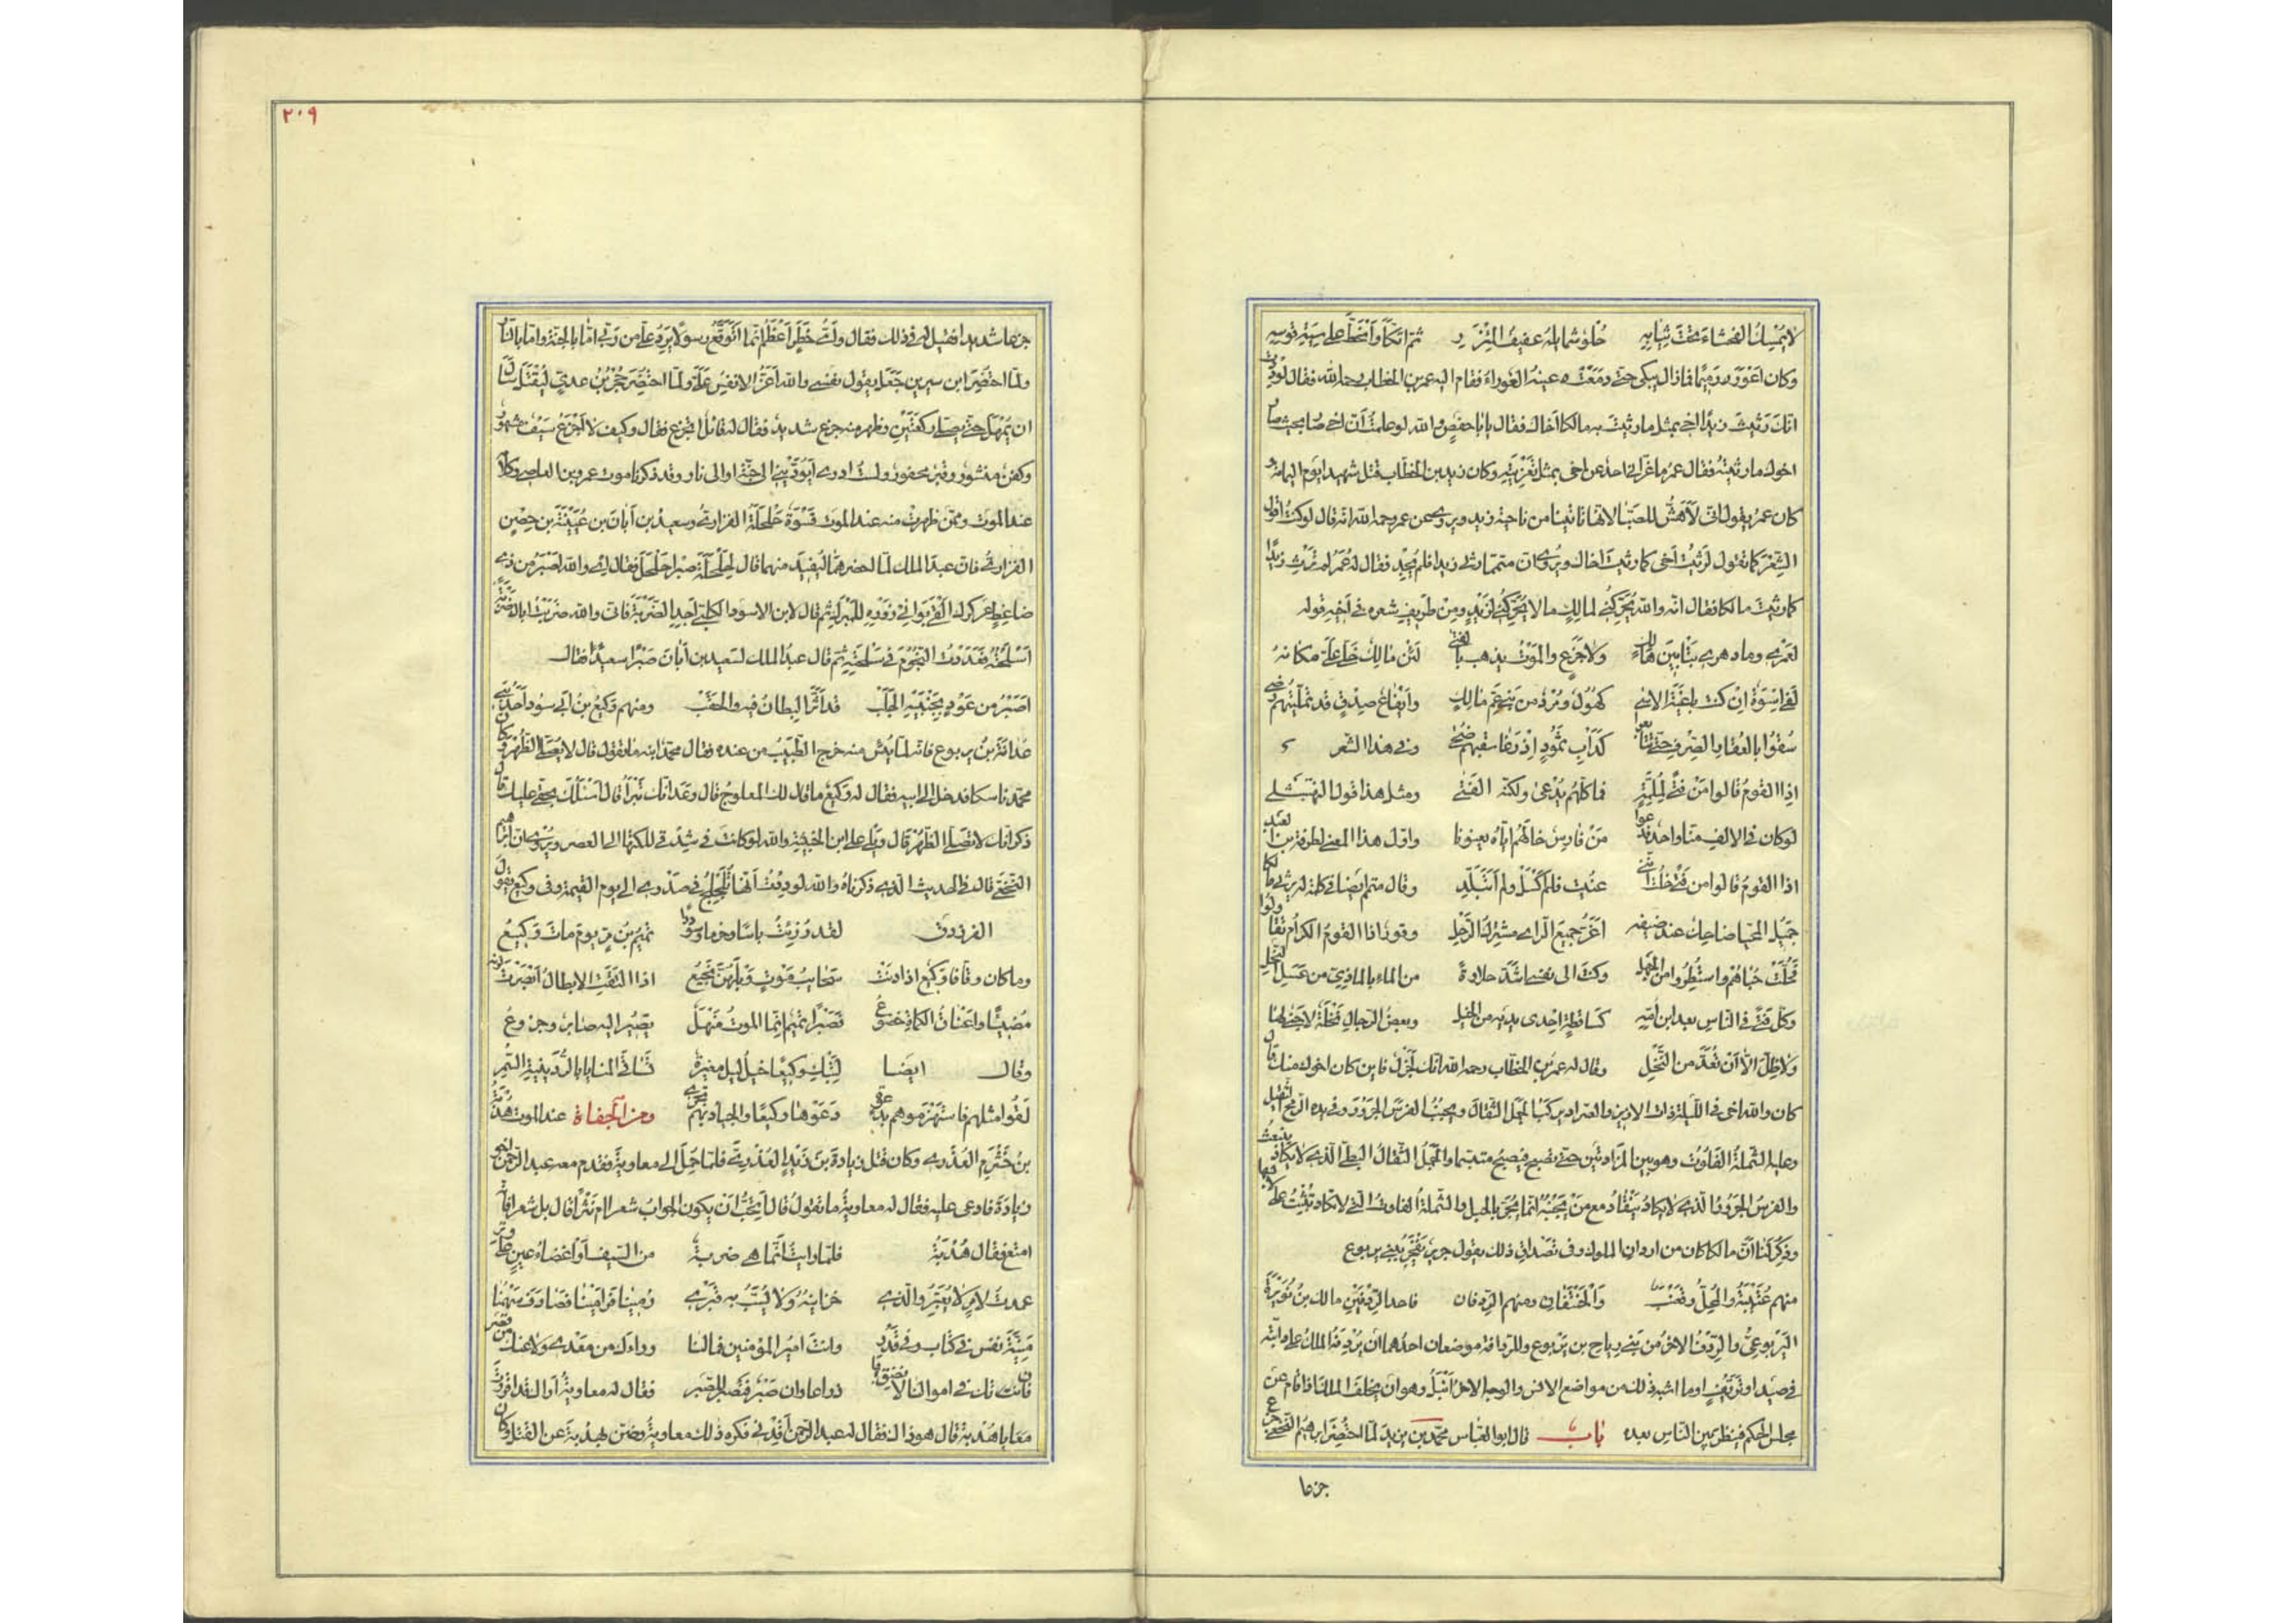 لا يُمْسِكُ الفحشاءَ تحتَ ثيابِهِ حُلوٌ شمايلهُ عفيفُ المِئزرِ ثم اتّكأ وانحطّ على سِيَةِ قوسه
وكان اعورَ دميمًا فما زال يبكى حتى دمعت عينه العوراء فقام اليه عمر بن الخطاب رحمه الله فقال لوددت
انك رثيت زيدًا اخى بمثل ما رثيت به مالكا اخاك فقال يا ابا حفص والله لو علمت ان اخى صار بحيث صار
اخوك ما رثيته فقال عمر ما عزانى احد عن اخى بمثل تعزيته وكان زيد بن الخطاب قتل شهيدا يوم اليمامة و
كان عمر يقول انى لأهَشّ للصَبا لانها تاتينا من ناحية زيد ويروى عن عمر رحمه الله انه قال لو كنت اقول
الشعر كما تقول لرثيت اخى كما رثيت اخاك ويروى ان متمما رثى زيدا فلم يجد فقال له عمر لم ترث زيدًا
كما رثيت مالكا فقال انه والله يحركنى لمالك ما لا يحركنى لزيد ومن طريف شعره فى اخيه قوله
لعمرى وما دهرى بتابين هالك ولا جزع والموت يذهب بالفتى لئن مالك خلى على مكانه
لفى اسوة ان كنت باغية الاسى كهول ومرد من بنى عم مالك وايفاع صدق قد تمليتهم رضى
سقوا بالعقار الصرف حتى تتابعوا كدأب ثمود اذ رغا سقبهم ضحى وفى هذا الشعر
اذا القوم قالوا من فتى لملمة فما كلهم يدعى ولكنه الفتى ومثل هذا قول النهشلى
لو كان فى الالف منا واحد فدعوا من فارس خالهم اياه يعنونا واول هذا المعنى لطرفة بن العبد
اذا القوم قالوا من فتى خلت اننى عنيت فلم اكسل ولم اتبلد وقال متمم ايضا فى كلمة له يرثى مالكا
جميل المحيا ضاحك عند ضيفه اغر جميع الراى مشترك الرحل وقور اذا القوم الكرام تقاولوا
فحلت حباهم واستطيروا من الجهل وكنت الى نفسى اشد حلاوة من الماء بالماذى من عسل النحل
وكل فتى فى الناس بعد ابن امه كساقطة احدى يديه من الخبل وبعض الرجال نخلة لا جنى لها
ولا ظل الا ان تعد من النخل وقال له عمر بن الخطاب رحمه الله انك لجزل فاين كان اخوك منك قال
كان والله اخى فى الليلة ذات الازيز والصراد يركب الجمل الثفال ويجنب الفرس الجرور وفى يده الرمح الثقيل
وعليه الشملة الفلوت وهو بين المزادتين حتى يصبح فيصبح متبسما والجمل الثفال البطى الذى لا يكاد ينبعث
والفرس الجرور الذى لا يكاد ينقاد مع من يجنبه انما يجر بالحبل والشملة الفلوت التى لا تكاد تثبت على لابسها
وذكر لنا ان مالكا كان من ارداف الملوك وفى تصداق ذلك يقول جرير يفخر ببنى يربوع
منهم عتيبة والمحل وقعنب والحنتفان ومنهم الردفان فاحد الردفين مالك بن نويرة
اليربوعى والردف الاخر من بنى رياح بن يربوع وللردافة موضعان احدهما ان يردفه الملك على دابته
فى صيد او تريف او ما اشبه ذلك من مواضع الانس والوجه الاخر انبل وهو ان يخلف الملك اذا قام عن
مجلس الحكم فينظر بين الناس بعده باب قال ابو العباس محمد بن يزيد لما احتضر ابرهيم النخعى جزع
جزعا
٢٠٩
جزعا شديدا فقيل له فى ذلك فقال واى خطر اعظم انما اتوقع رسولا يرد على من ربى اما بالجنة واما بالنار
ولما احتضر ابن سيرين جعل يقول نفسى والله اعز الانفس على ولما احتضر حجر بن عدى ليقتل سال
ان يمهل حتى يصلى ركعتين وظهر منه جزع شديد فقال له قائل اتجزع فقال وكيف لا اجزع سيف مشهور
وكفن منشور وقبر محفور ولست ادرى ايؤديني الى جنة او الى نار وقد ذكرنا موت عمرو بن العاص وكلامه
عند الموت وممن ظهرت منه عند الموت قسوة حلحلة الفزارى وسعيد بن ابان بن عيينة بن حصن
الفزارى فان عبد الملك لما احضرهما ليقيد منهما قال لحلحلة صبرا حلحل فقال اى والله اصبر من ذى
ضاغط عركرك القى بوانى زوره للمبرك ثم قال لابن الاسود الكلبى اجد الضربة فانى والله ضربت اباك ضربة
اسلحته فعددت النجوم فى سلحته ثم قال عبد الملك لسعيد بن ابان صبرا سعيد فقال
اصبر من عود بجنبيه الجلب قد اثر البطان فيه والحقب ومنهم وكيع بن ابى سود احد بنى
غدانة بن يربوع فانه لما يئس منه خرج الطبيب من عنده فقال محمد ابنه ما تقول قال لا يصلى الظهر وكان
محمد ناسكا فدخل الى ابيه فقال له وكيع ما قال لك المعلوج قال وعد انك تبرأ قال اسئلك بحقى عليك قال
ذكر انك لا تصلى الظهر قال ويلى على ابن الخبيثة والله لو كانت فى شدقى للكتها الى العصر ويروى ان ابرهيم
النخعى قال فى الحديث الذى ذكرناه والله لوددت انها تلجلج فى صدرى الى يوم القيمة وفى وكيع يقول
الفرزدق لقد رزئت باسا وحزما وسوددا تميم بن مر يوم مات وكيع
وما كان وقافا وكيع اذا دنت سحايب موت وبلهن نجيع اذا التقت الابطال ابصرت لونه
مضيئا واعناق الكماة خضوع فصبرا تميم انما الموت منهل يصير اليه صابر وجزوع
وقال ايضا لتبك وكيعا خيل ليل مغيرة تساقى المنايا بالردينية السمر
لقوا مثلهم فاستهزموهم بدعوة دعوها وكيعا والجياد بهم تجرى ومن الجفاة عند الموت هدبة
بن خشرم العذرى وكان قتل زيادة بن زيد العذرى فلما حمل الى معاوية فقدم معه عبد الرحمن اخو
زيادة فادعى عليه فقال له معاوية ما تقول قال اتحب ان يكون الجواب شعرا ام نثرا قال بل شعرا فانه
امتع فقال هدبة فلما رايت انما هى ضربة من السيف او اغضاء عين على وتر
عمدت لامر لا يعير والدى خزايته ولا يسب به قبرى رمينا فرامينا فصادف سهمنا
منية نفس فى كتاب وفى قدر وانت امير المؤمنين فما لنا وراءك من معدى ولا عنك من قصر
فان تك فى اموالنا لا نضق بها ذراعا وان صبر فنصبر للصبر فقال له معاوية اراك قد اقررت
معا يا هدبة قال هو ذاك فقال له عبد الرحمن اقدنى فكره ذلك معاوية وضن بهدبة عن القتل وكان